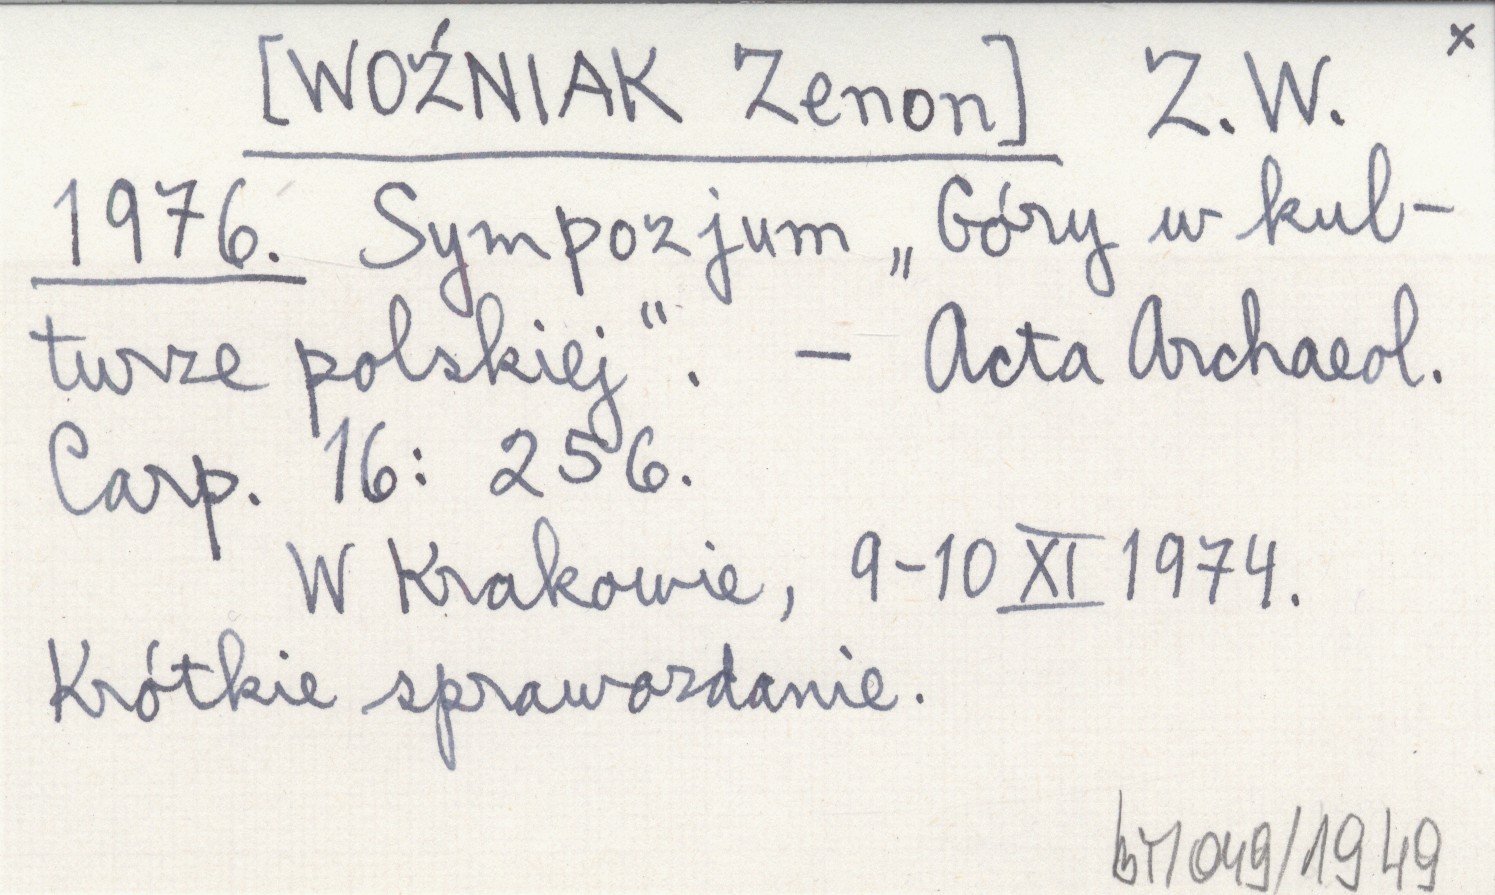 [WOŹNIAK Zenon] Z.W. x
1976. Sympozjum „Góry w kul-
turze polskiej". – Acta Archaeol.
Carp. 16: 256.
W Krakowie, 9–10 XI 1974.
Krótkie sprawozdanie.
/049/1949